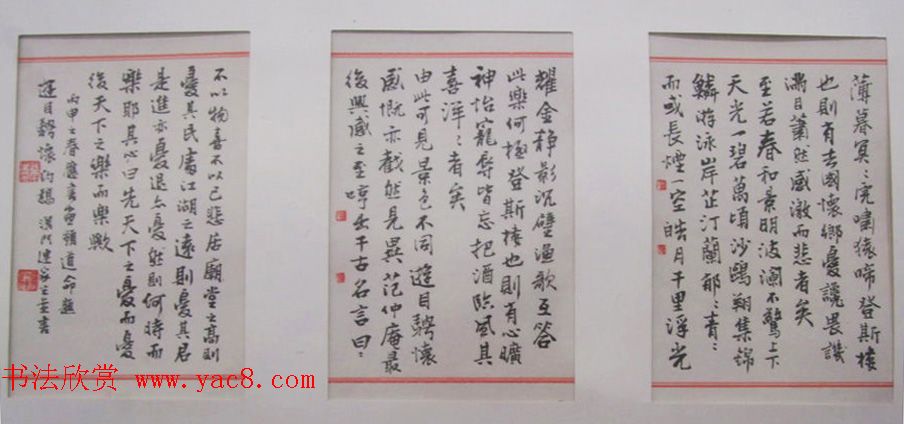 薄暮冥〻虎啸猿啼登斯楼
也则有去國懷鄉憂讒畏譏
满目蕭然感激而悲者矣
至若春和景明波瀾不驚上下
天光一碧萬頃沙鷗翔集锦
鱗游泳岸芷汀蘭郁〻青〻
而或長煙一空皓月千里浮光
耀金静影沉璧漁歌互答
此樂何極登斯楼也則有心曠
神怡寵辱皆忘把酒临風其
喜洋〻者矣
由此可見景色不同遊目騁懷
感慨亦截然見異范仲庵最
後興感之至 出千古名言曰〻
不以物喜不以己悲居廟堂之高則
憂其民處江湖之遠則憂其君
是進亦憂退亦憂然則何時而
樂耶其必曰先天下之憂而憂
後天下之樂而樂歟
丙申之春應書畫 道命題
遊目騁懷
书法欣赏 www.yac8.com